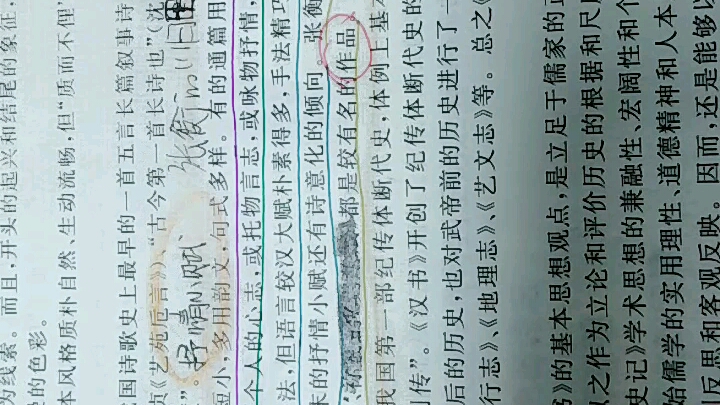 为线索。而且，开头的起兴和结尾的象征，
的色彩。
本风格质朴自然、生动流畅，但“质而不俚”
国诗歌史上最早的一首五言长篇叙事诗
《艺苑卮言》）、“古今第一首长诗也”（沈
”。
抒情小赋 张衡
短小，多用韵文，句式多样。有的通篇用
个人的心志，或托物言志，或咏物抒情，
法，但语言较汉大赋朴素得多，手法精巧
末的抒情小赋还有诗意化的倾向，张衡
都是较有名的作品。
我国第一部纪传体断代史，体例上基本
列传”。《汉书》开创了纪传体断代史的
后的历史，也对武帝前的历史进行了一
行志》、《地理志》、《艺文志》等。总之《
书》的基本思想观点，是立足于儒家的正
以之作为立论和评价历史的根据和尺度
史记》学术思想的兼融性、宏阔性和个
始儒学的实用理性、道德精神和人本
刻反思和客观反映。因而，还是能够以